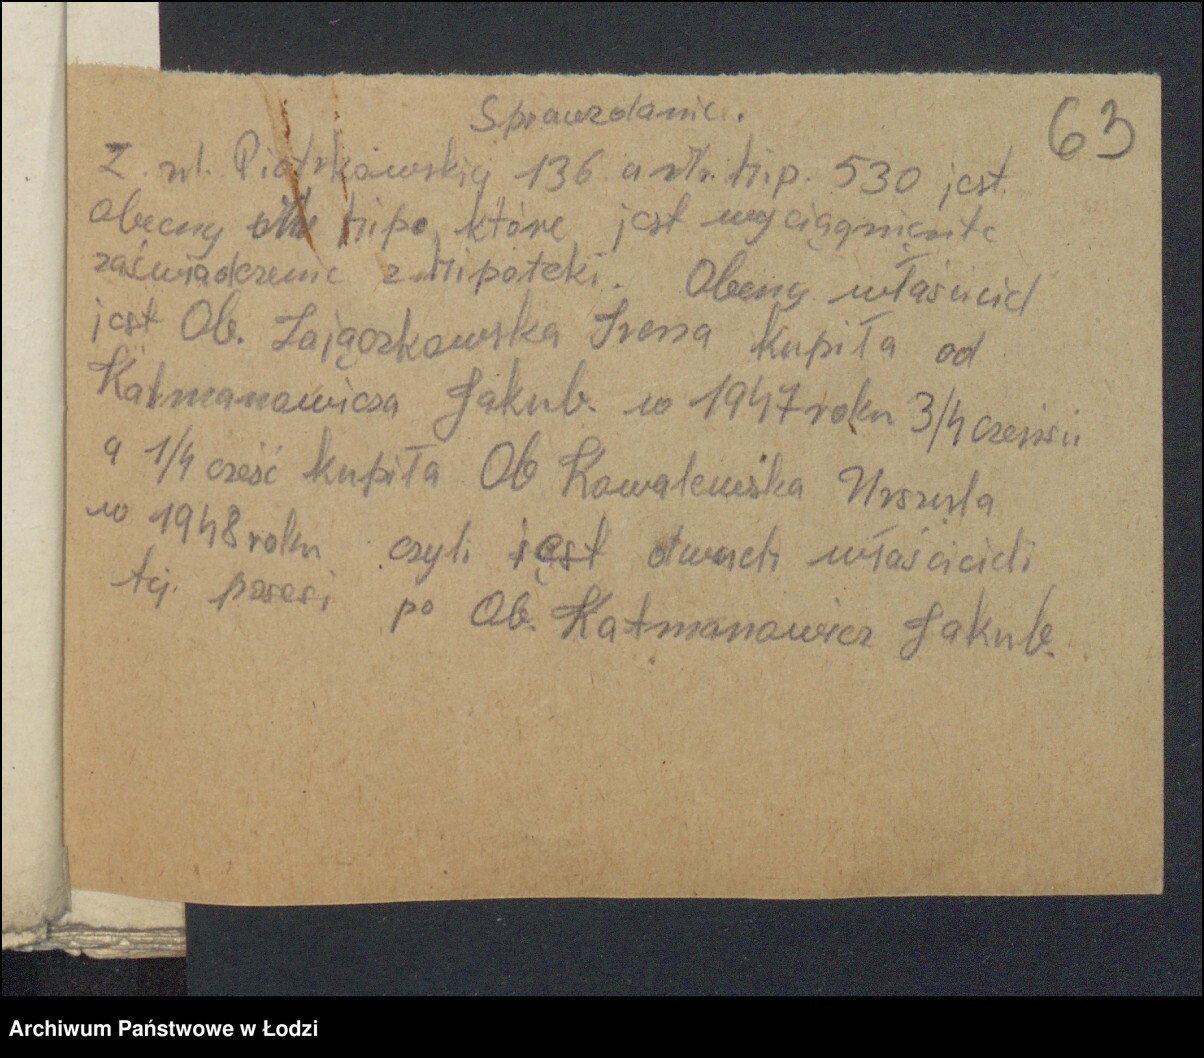 Sprawzdanie.
63
Z. ul. Piotrkowskiej 136 a nr. hip. 530 jest
obecny hipo, które jest wyciągniente
zaświadczenie z hipoteki. Obecny właściciel
jest Ob. Zajączkowska Irena kupiła od
Kałmanowicza Jakub. w 1947 roku 3/4 czensci
a 1/4 cześć kupiła Ob Kowalewska Urszula
w 1948 roku czyli jest dwuch właścicieli
tej posesi po Ob. Kałmanowicz Jakub.
Archiwum Państwowe w Łodzi